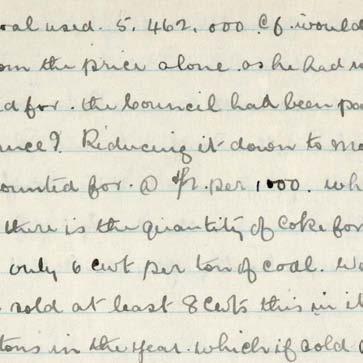 oal used. 5,462,000 Cf. would
om the price alone. as he had
d for. the Council had been pa
ence? Reducing it down to mo
ounted for. @ per 1000. wh
there is the quantity of Coke for
only 6 cwt per ton of coal. We
sold at least 8 Cwts this in it
tons in the year. which if sold